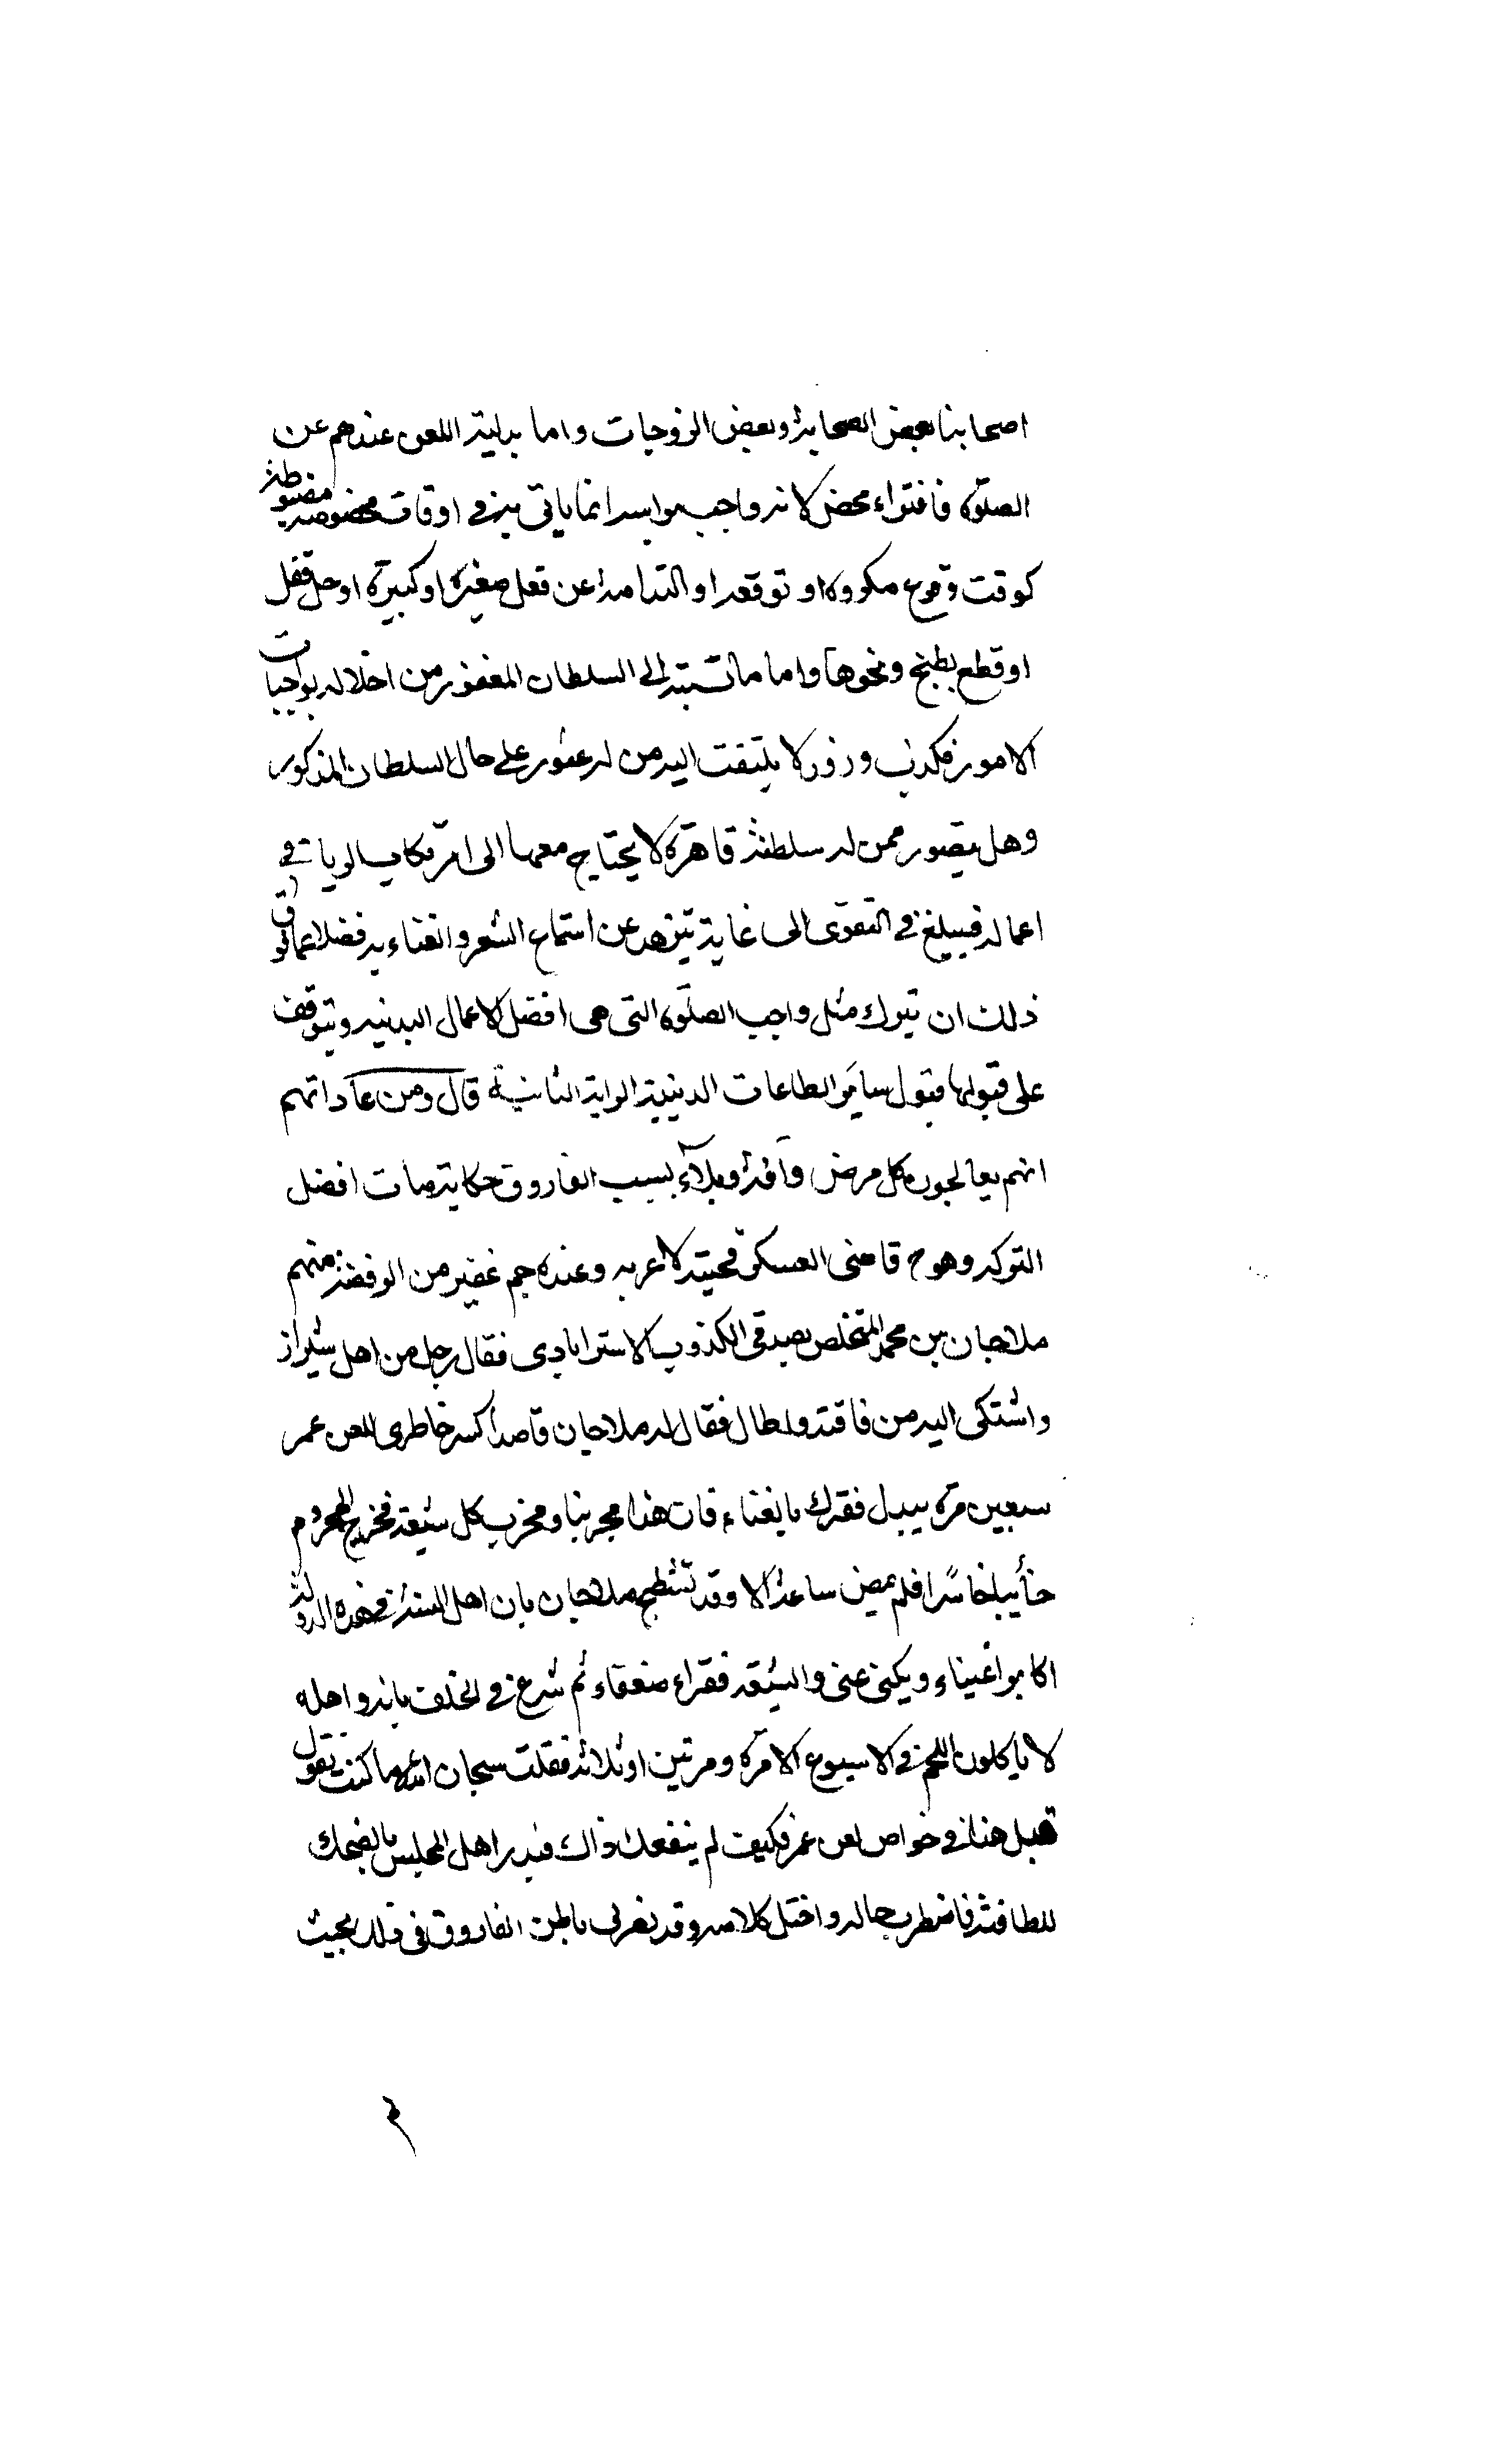 اصحابنا بعض الصحابة وبعض الزوجات واما بدلية اللعن عندهم عن
الصلوة فافتراء محض لانه واجب براسه انما ياتى به فى اوقات مخصوصة مضبوطة
كوقت وقوع مكروه او توقعه او الندامة عن فعل صغيرة او كبيرة او حل قفل
او قطع بطيخ ونحوها واما ما نسبته الى السلطان المغفور من اخلاله بواجبات
الامور فكذب وزور لا يلتفت اليه من له عثور على حال السلطان المذكور
وهل يتصور ممن له سلطنة قاهرة لا يحتاج معها الى ارتكاب الريا فى
اعماله فيبلغ فى التقوى الى غاية تنزهه عن استماع الشعر والغناء به فضلا عما فوق
ذلك ان يترك مثل واجب الصلوة التى هى افضل الاعمال البدنيه ويتوقف
على قبولها قبول سائر الطاعات الدينية الراية الثانية قال ومن عاداتهم
انهم يعالجون كل مرض وآفة وبلاء بسبب الفاروق حكاية مات افضل
التركه وهو ح قاضى العسكر فجئته لاعزيه وعنده جم غفير من الرفضة منهم
ملاجان بن محمد المتخلص بصدقى الكذوب الاسترابادى فقال رجل من اهل شيراز
واشتكى اليه من فاقته واطال فقال له ملاجان قاصدا كسر خاطرى العن عمر
سبعين مرة يبدل فقرك بالغناء فان هذا مجربنا ومجرب كل شيعة فخرج المحروم
خائبا خاسرا فلم يمض ساعة الا وقد تشطح ملاجان بان اهل السنة فى هذه الدولة
اكابر اغنياء ويكنى عنى والشيعة فقراء ضعفاء ثم شرع فى الحلف بانه واهله
لا ياكلون اللحم فى الاسبوع الا مرة ومرتين او ثلاثة فقلت سبحان الله ما كنت تقول
قبل هذا فى خواص لعن عمر فكيف لم ينفعك ذاك فبدر اهل المجلس بالضحك
للطافته فاضطرب حاله واختل كلامه وقد نصرنى باطن الفاروق فى ذلك بحيث